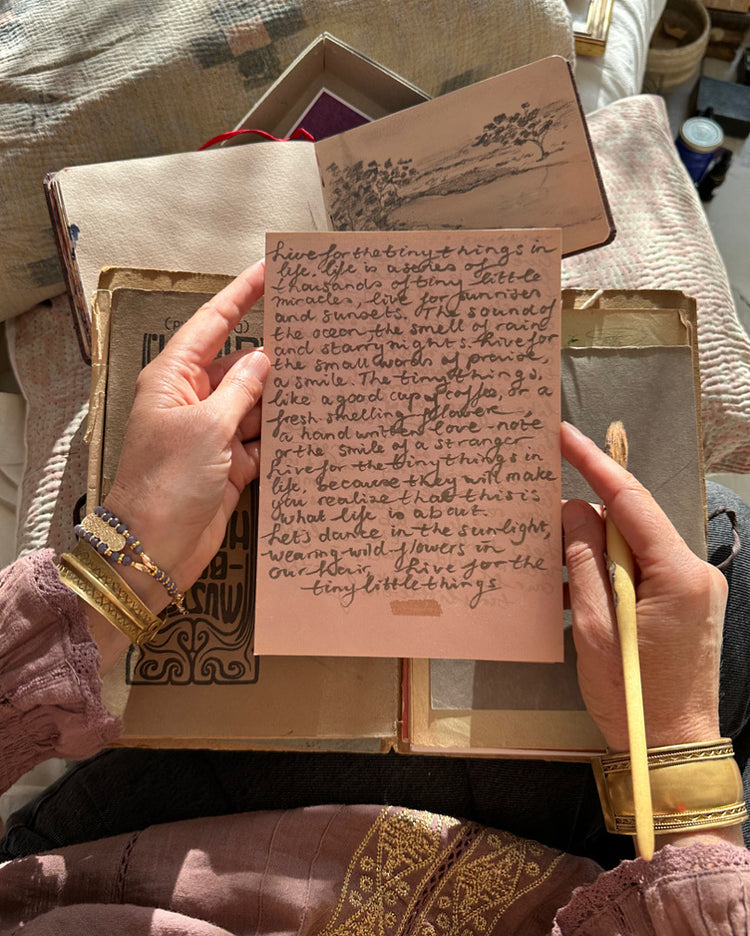 Live for the tiny things in
life. life is a series of
thousands of tiny little
miracles, live for sunrises
and sunsets. The sound of
the ocean, the smell of rain
and starry nights. Live for
the small words of praise,
a smile. The tiny things,
like a good cup of coffee, or a
fresh smelling flower
a hand written love-note
or the smile of a stranger
Live for the tiny things in
life, because they will make
you realize that this is
what life is about.
Let's dance in the sunlight,
wearing wild flowers in
our hair. Live for the
tiny little things